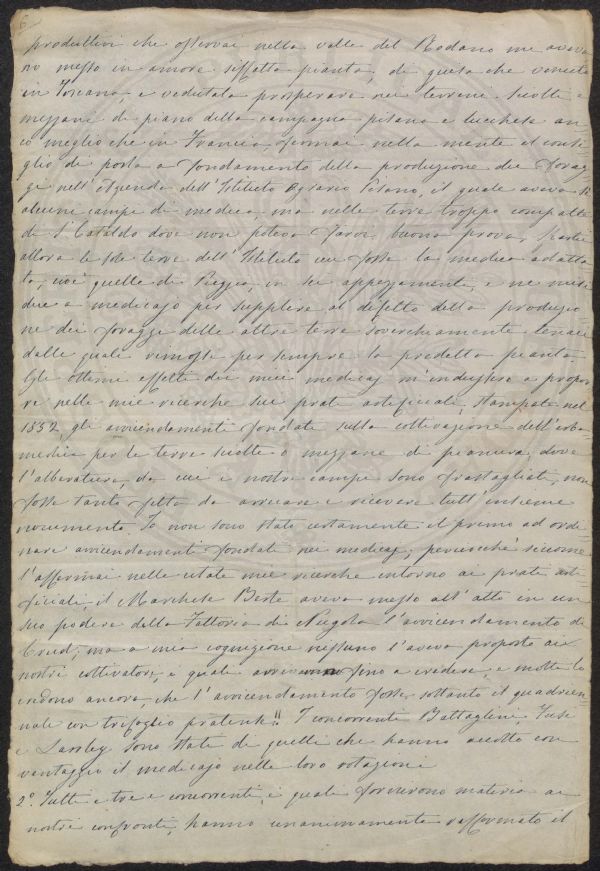 6
produttivi che osservai nella valle del Rodano me aveva
no messo in amore siffatta pianta, di guisa che venuto
in Toscana, e vedutala prosperare nei terreni sciolti e
mezzani di piano della campagna pisana e lucchese an
co' meglio che in Francia, formai nella mente il consi
glio di porla a fondamento della produzione dei forag
gi nell'Azienda dell'Istituto Agrario Pisano, il quale aveva sì
alcuni campi di medica, ma nelle terre troppo compatte
di S. Cataldo dove non poteva farvi buona prova. Scelsi
allora le sole terre dell'Istituto cui fosse la medica adatta
ta, cioè quelle di Piaggia, in sei appezzamenti, e ne misi
due a medicajo per supplire al difetto della produzio
ne dei foraggi delle altre terre soverchiamente tenaci
dalle quali rimossi per sempre la predetta pianta.
Gli ottimi effetti dei miei medicaj m'indussero a propor
re nelle mie ricerche sui prati artificiali, stampate nel
1832, gli avvicendamenti fondati sulla coltivazione dell'erba
medica per le terre sciolte o mezzane di pianura, dove
l'alberatura, da cui i nostri campi sono frastagliati, non
fosse tanto fitta da arrecare e ricevere tutt'insieme
nocumento. Io non sono stato certamente il primo ad ordi
nare avvicendamenti fondati nei medicaj; perciocchè siccome
l'affermai nelle citate mie ricerche intorno ai prati arti
ficiali, il Marchese Barto aveva messo all'atto in un
suo podere della Fattoria di Nugola l'avvicendamento di
Crud; ma a mia cognizione nessuno l'aveva proposto ai
nostri coltivatori, i quali fino a credere, e molti lo
credono ancora, che l'avvicendamento fosse soltanto il quadrien
nale con trifoglio pratense!! I concorrenti Battaglini,
e sono stati di quelli che hanno accolto con
vantaggio il medicajo nelle loro rotazioni
2.° Tutti e tre i concorrenti, i quali fornirono materia ai
nostri confronti, hanno unanimamente raffermato il